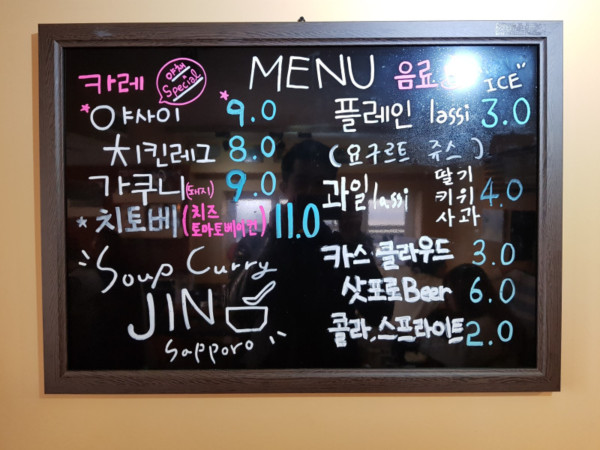 MENU
카레
야채 Special
*야사이 *9.0
치킨레그 8.0
가쿠니(돼지) 9.0
*치토베(치즈 토마토베이컨) 11.0
"Soup Curry
JIN
Sapporo"
음료 ICE"
플레인 lassi 3.0
(요구르트 쥬스)
과일 lassi 딸기 키위 사과 4.0
카스 클라우드 3.0
삿포로 Beer 6.0
콜라, 스프라이트 2.0